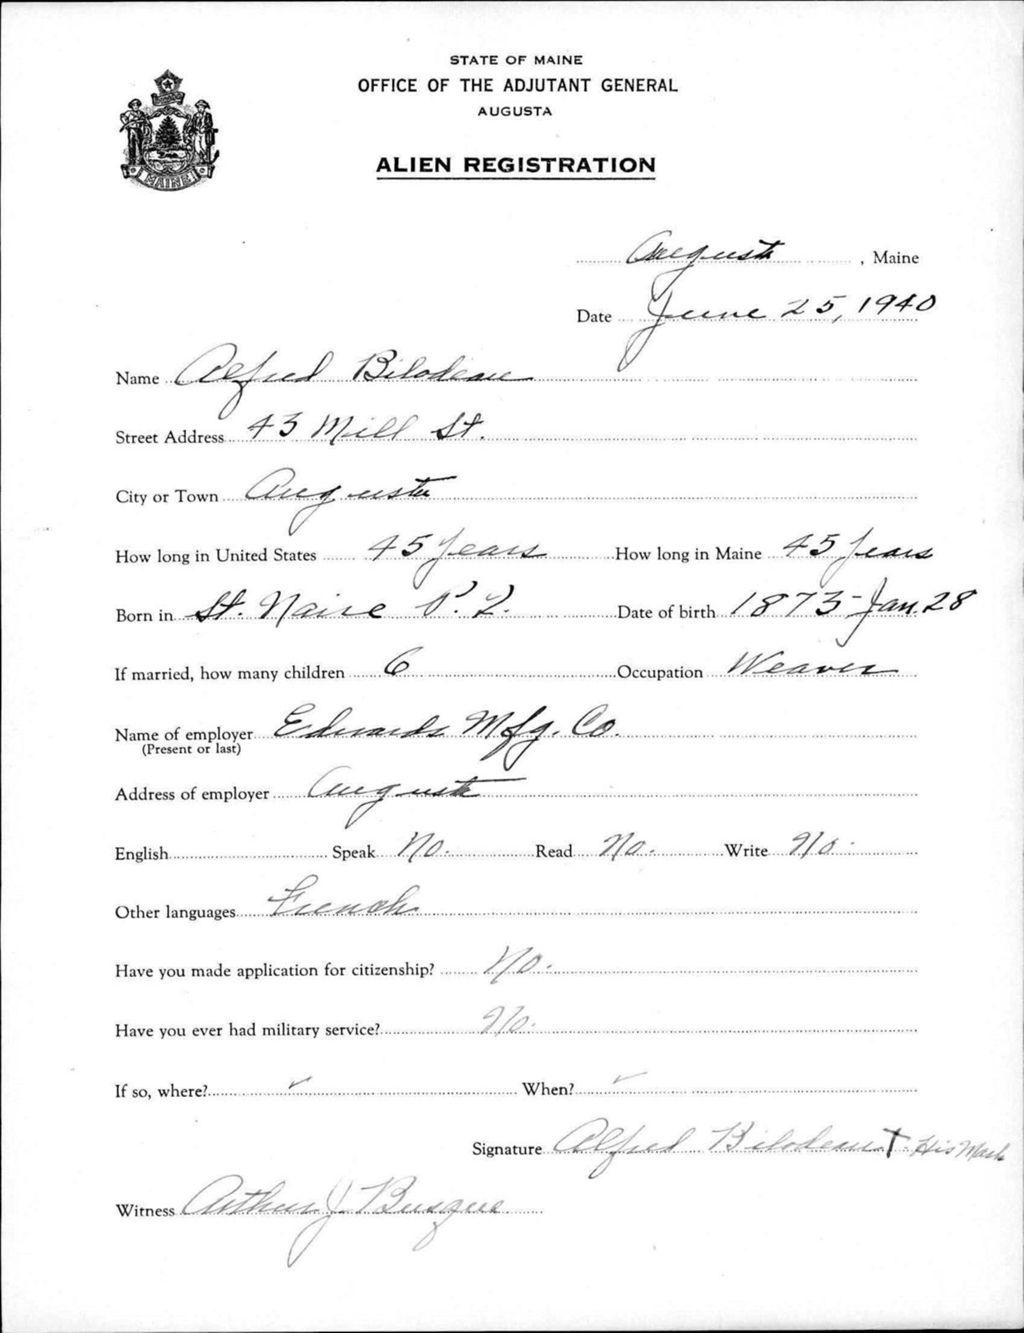 STATE OF MAINE
OFFICE OF THE ADJUTANT GENERAL
AUGUSTA
ALIEN REGISTRATION
MAINE
Augusta, Maine
Date June 25, 1940
Name Alfred Bilodeau
Street Address 43 Mill St.
City or Town Augusta
How long in United States 45 years How long in Maine 45 years
Born in St. P.Q. Date of birth 1873-Jan. 28
If married, how many children 6 Occupation Weaver
Name of employer Edwards Mfg. Co.
(Present or last)
Address of employer Augusta
English Speak No. Read No. Write No.
Other languages French
Have you made application for citizenship? No.
Have you ever had military service? No.
If so, where? ✓ When? ✓
Signature Alfred Bilodeau † His Mark
Witness Arthur J. Busque